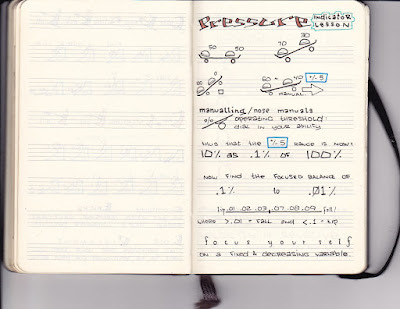 Pressure
indicator
LESSON
50 50
70 30
60 - 40 %5
manual
manualling / nose manuals
OPERATING THRESHOLD
DIAL IN YOUR ABILITY
THUS THAT THE %5 RANGE IS NOW:
10% as .1% of 100%
NOW FIND THE FOCUSED BALANCE OF
.1% to .01%
.01 .02 .03 .07 .08 .09 fall!
WHERE >.01 = FALL AND <.1 =
focus yourself
ON A FIXED & DECREASING VARIABLE.